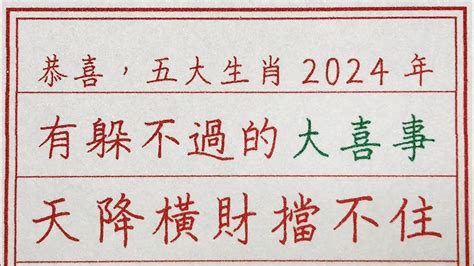 恭喜，五大生肖2024年
有躲不過的大喜事
天降橫財擋不住